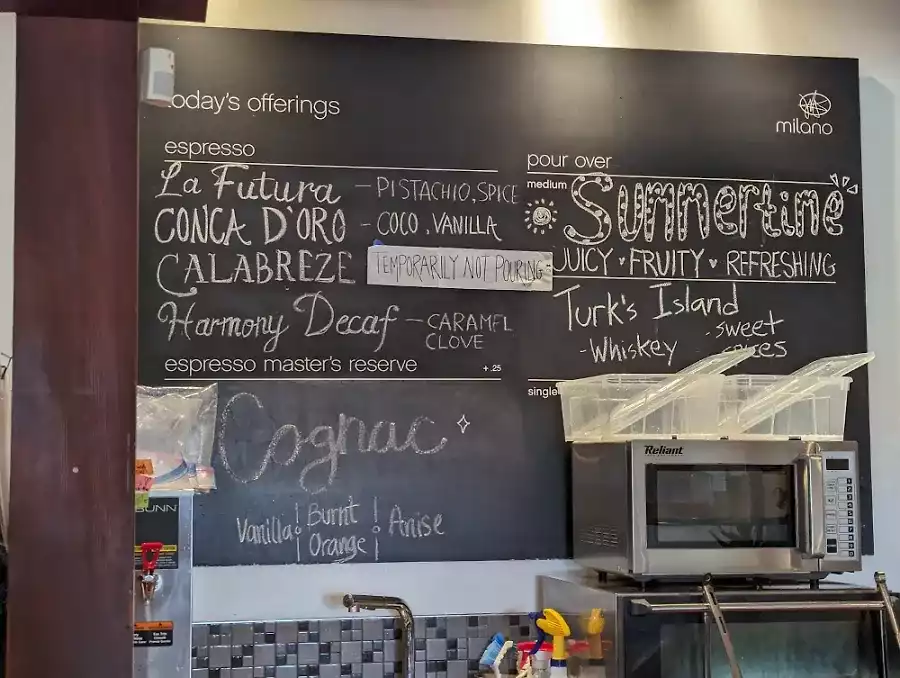 today's offerings
milano
espresso
La Futura - PISTACHIO, SPICE
CONCA D'ORO - COCO, VANILLA
CALABREZE TEMPORARILY NOT POURING
Harmony Decaf - CARAMEL
CLOVE
espresso master's reserve +.25
Cognac
Vanilla Burnt Orange Anise
pour over
medium Summertime
JUICY ♥ FRUITY ♥ REFRESHING
Turk's Island
-Whiskey -sweet
spices
single
Reliant
BUNN